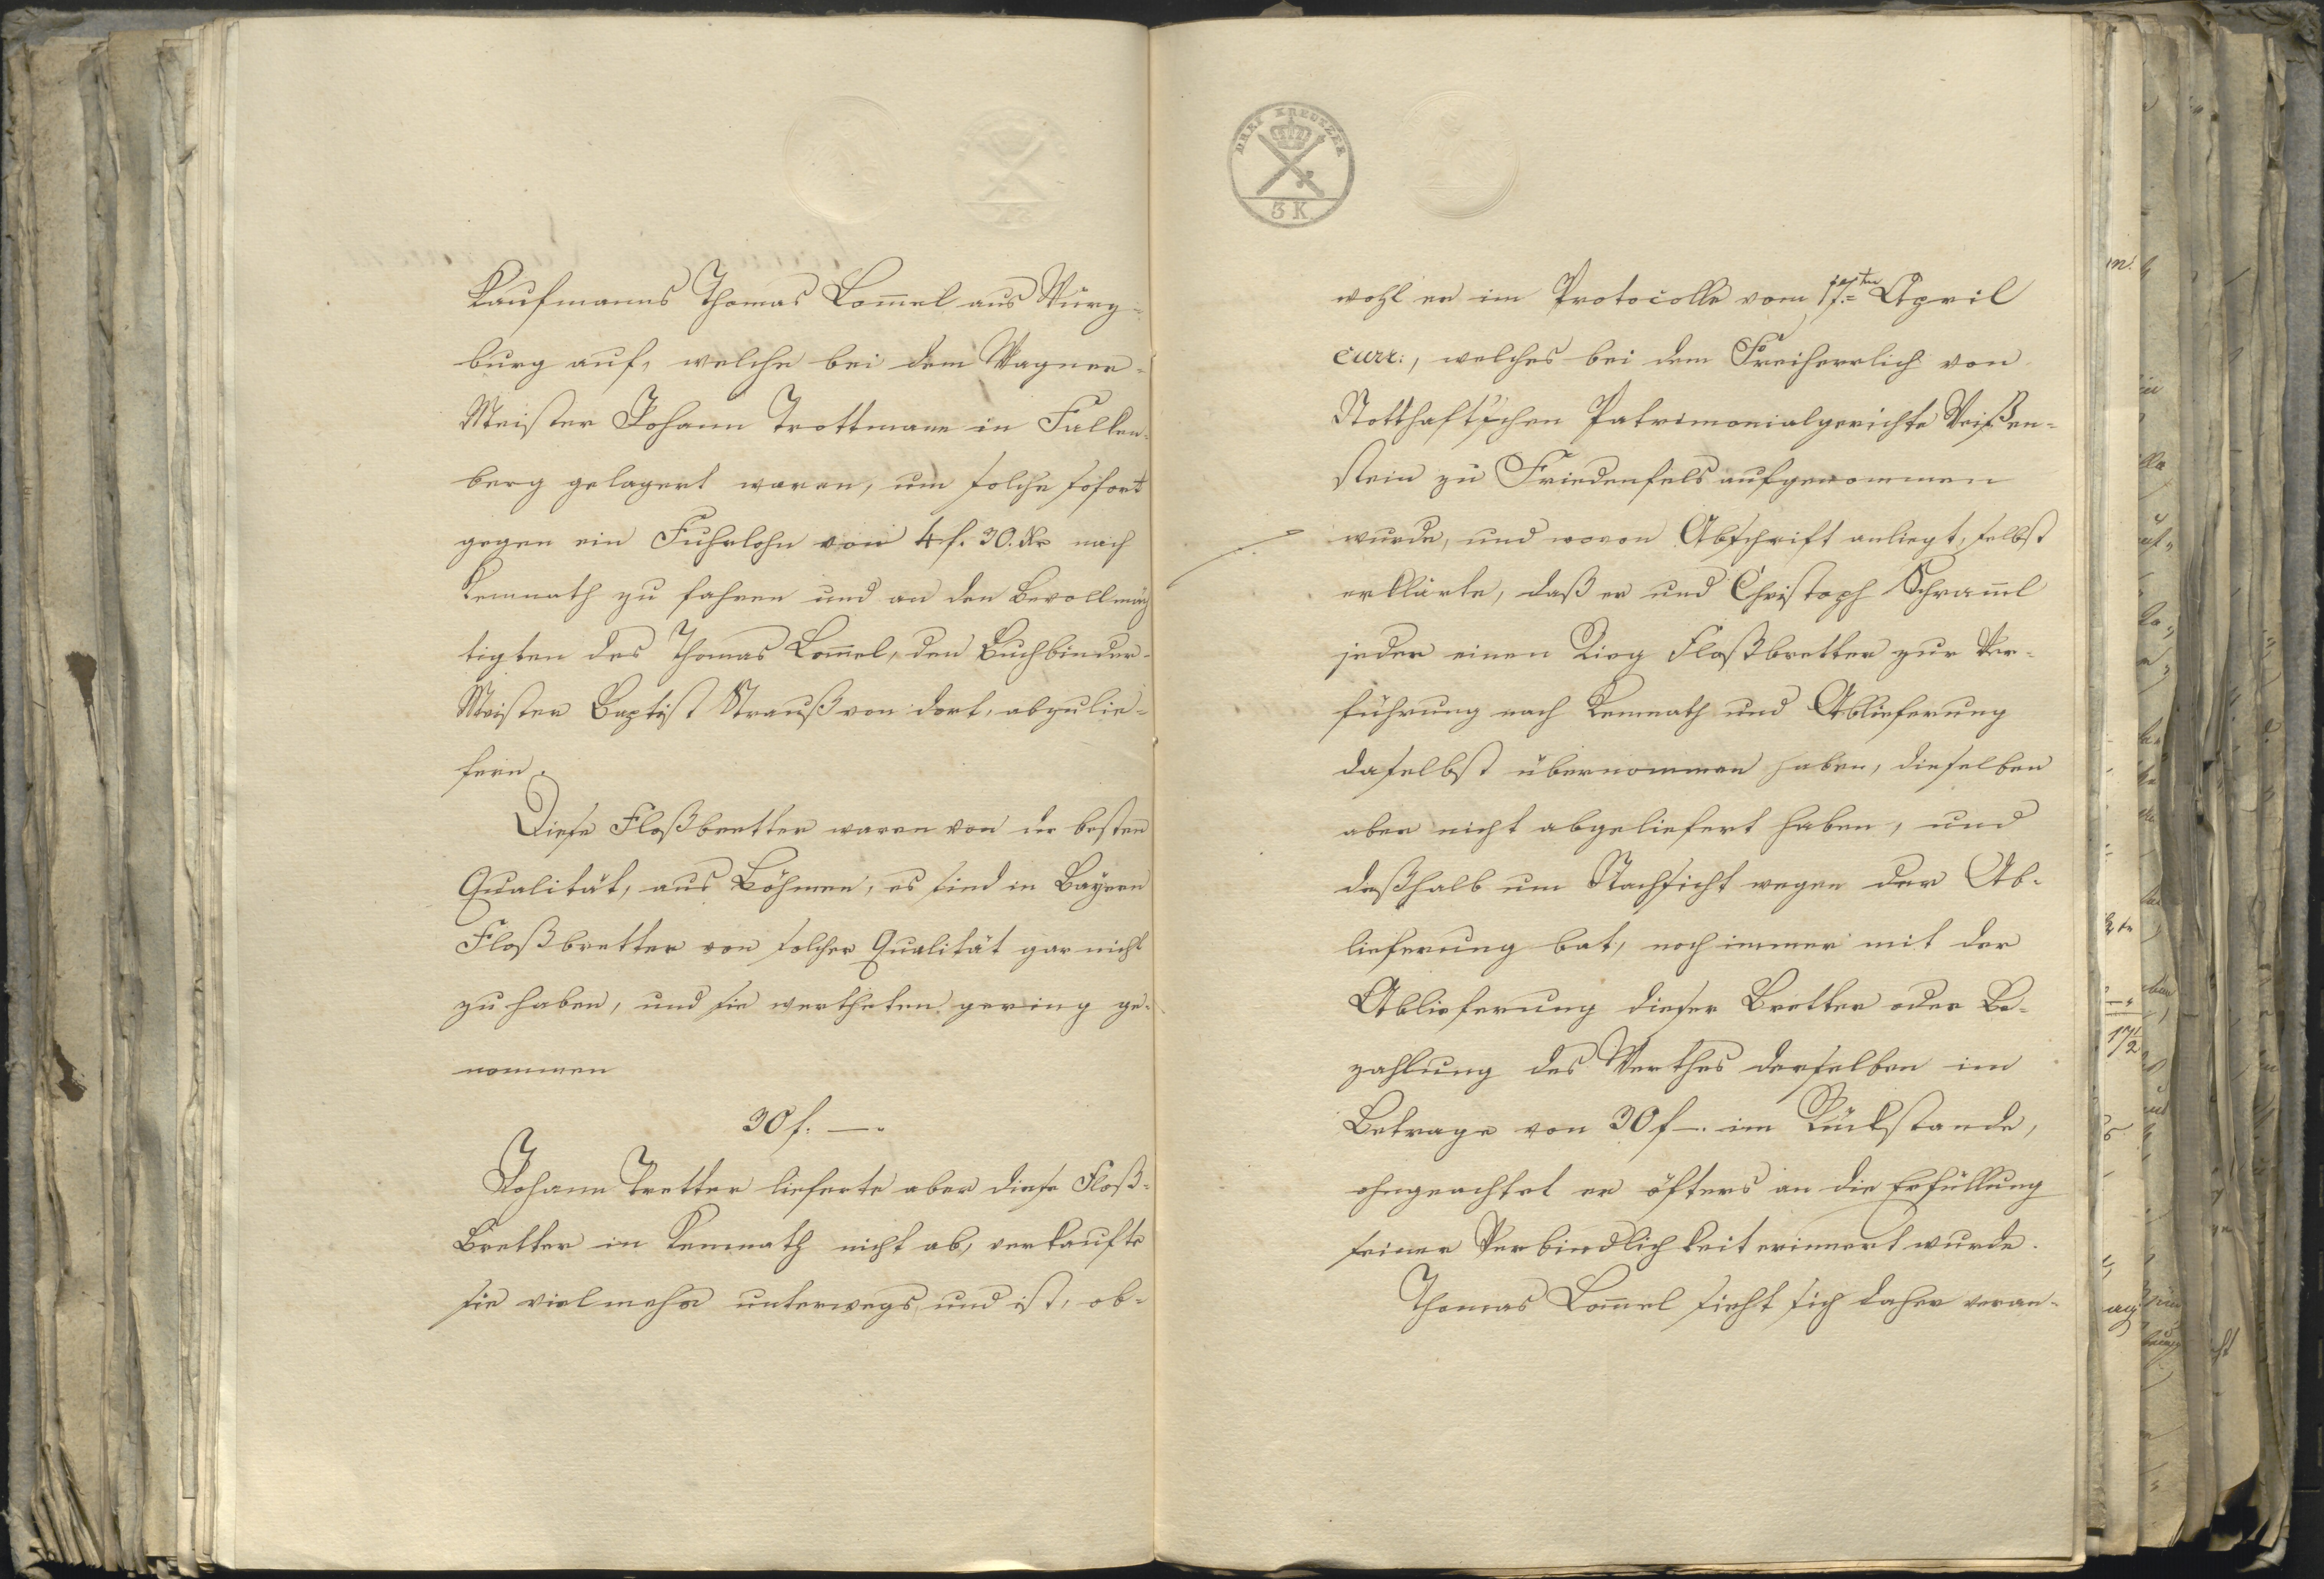 Kaufmanns Thomas Lom̅el aus Würz-
burg auf, welche bei dem Wagner-
Meister Johann Trottmann in Falken-
berg gelagert waren, um solche sofort
gegen ein Fuhrlohn von 4 f. 30. Kr nach
Kemnath zu fahren und an den Bevollmäch
tigten des Thomas Lom̅el, den Buchbinder-
Meister Baptist Strauß von dort, abzulie-
fern.
Diese Floßbretter waren von der besten
Qualität, aus Böhmen, es sind in Bayern
Floßbretter von solcher Qualität gar nicht
zu haben, und sie wertheten gering ge-
nommen
30 f. —.
Johann Tretter lieferte aber diese Floß-
Bretter in Kemnath nicht ab, verkaufte
sie vielmehr unterwegs, und ist, ob-
DREI KREUZER
3 K
wohl er im Protocolle vom 17.ten April
curr:, welches bei dem Freiherrlich von
Notthaft'schen Patrimonialgerichte Weißen-
stein zu Friedenfels aufgenommen
wurde, und wovon Abschrift anliegt, selbst
erklärte, daß er und Christoph Schram̅l
jeder einen Floßbretter zur Ver-
führung nach Kemnath und Ablieferung
daselbst übernommen haben, dieselben
aber nicht abgeliefert haben, und
deßhalb um Nachsicht wegen der Ab-
lieferung bat, noch immer mit der
Ablieferung dieser Bretter oder Be-
zahlung des Werthes derselben im
Betrage von 30 f —. im Rückstande,
ohngeachtet er öfters an die Erfüllung
seiner Verbindlichkeit erinnert wurde.
Thomas Lom̅el sieht sich daher veran-